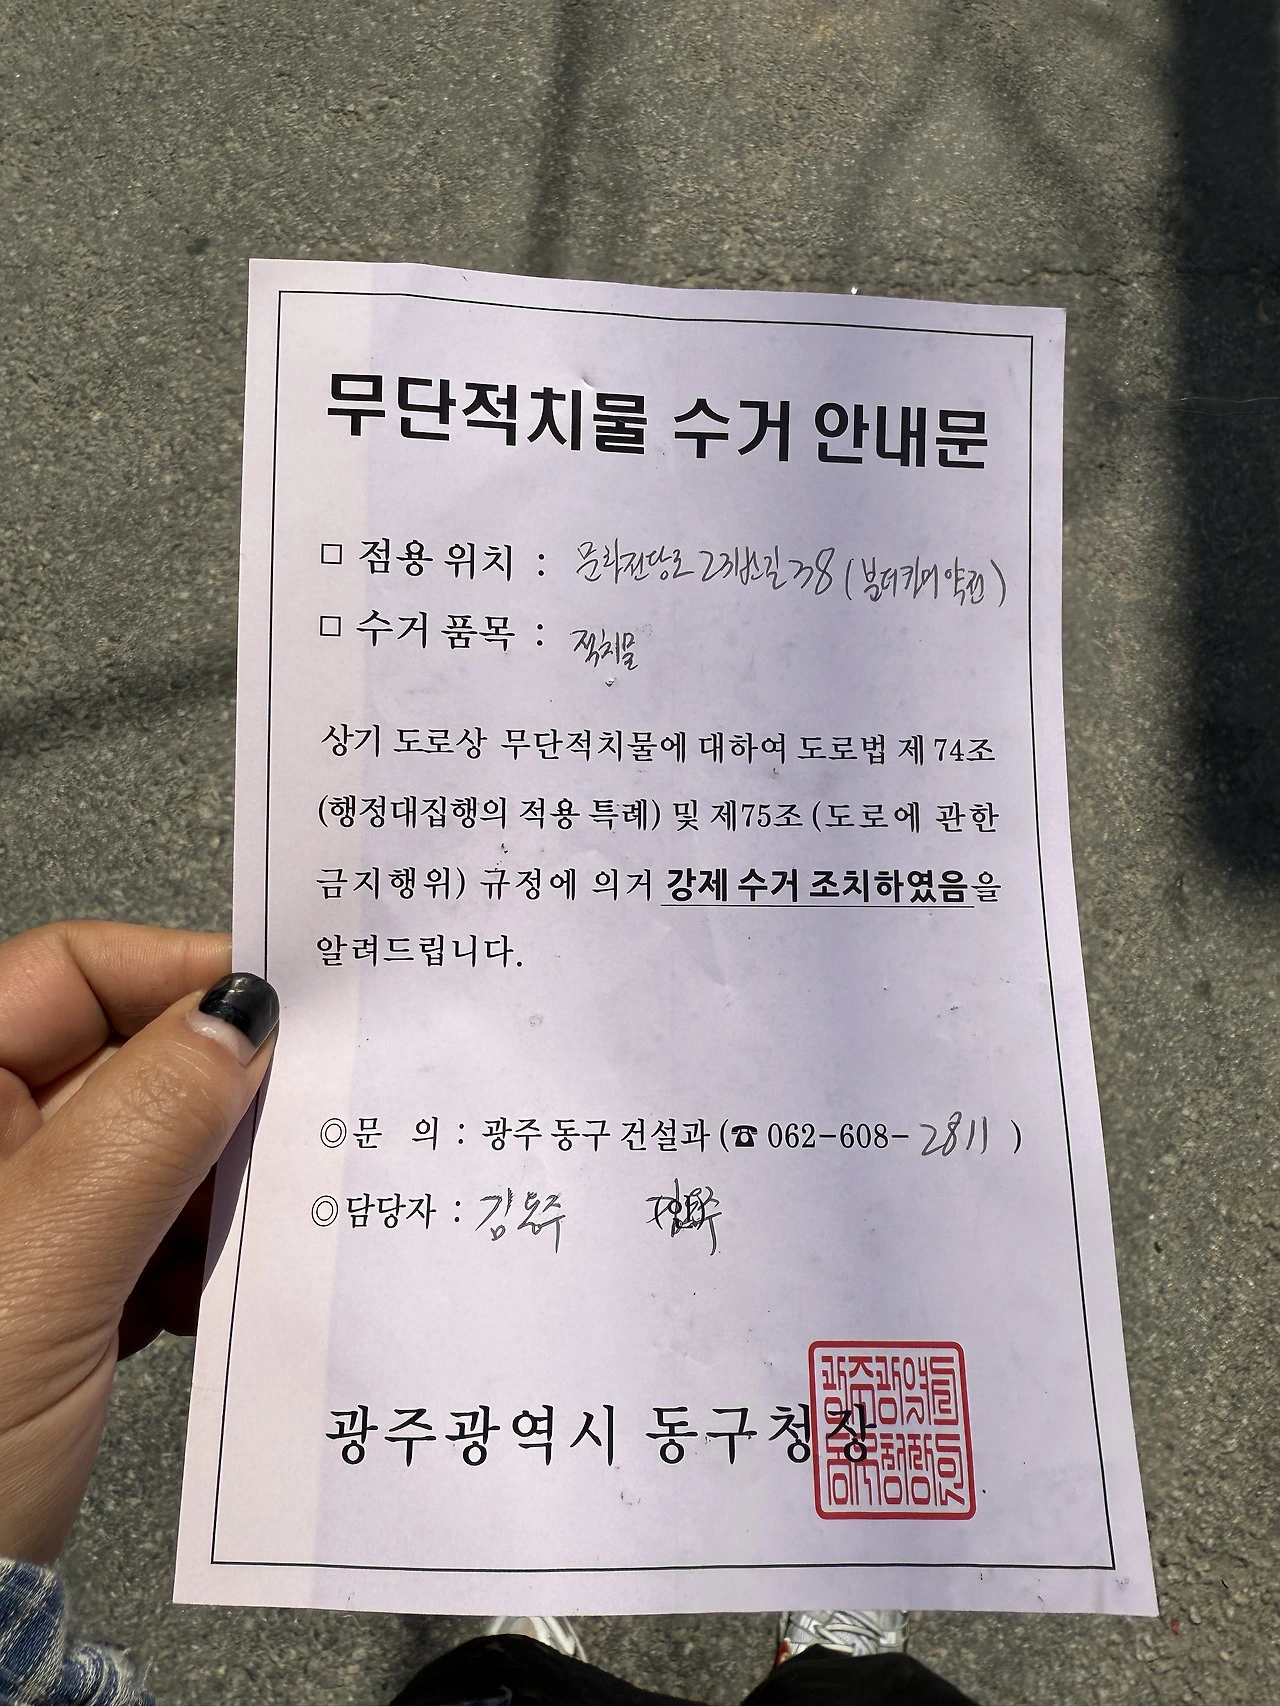 무단적치물 수거 안내문
□ 점용 위치 : 문화전당로23번길 38 (
□ 수거 품목 : 적치물
상기 도로상 무단적치물에 대하여 도로법 제 74조
(행정대집행의 적용 특례) 및 제75조 (도로에 관한
금지행위) 규정에 의거 강제 수거 조치하였음을
알려드립니다.
◎문 의 : 광주 동구 건설과 (☎ 062-608-2811 )
◎담당자 :
광주광역시 동구청장